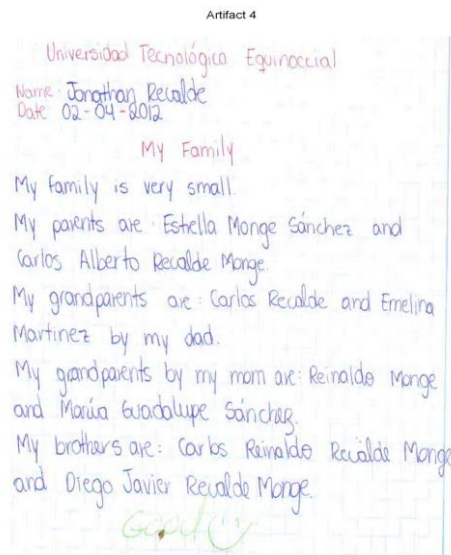 Artifact 4
Universidad Tecnológica Equinoccial
Name: Jonathan Recalde
Date 02-04-2012
My Family
My family is very small.
My parents are: Estrella Monge Sánchez and
Carlos Alberto Recalde Monge.
My grandparents are: Carlos Recalde and Emelina
Martinez by my dad.
My grandparents by my mom are: Reinaldo Monge
and María Guadalupe Sánchez.
My brothers are: Carlos Reinaldo Recalde Monge
and Diego Javier Recalde Monge.
Good